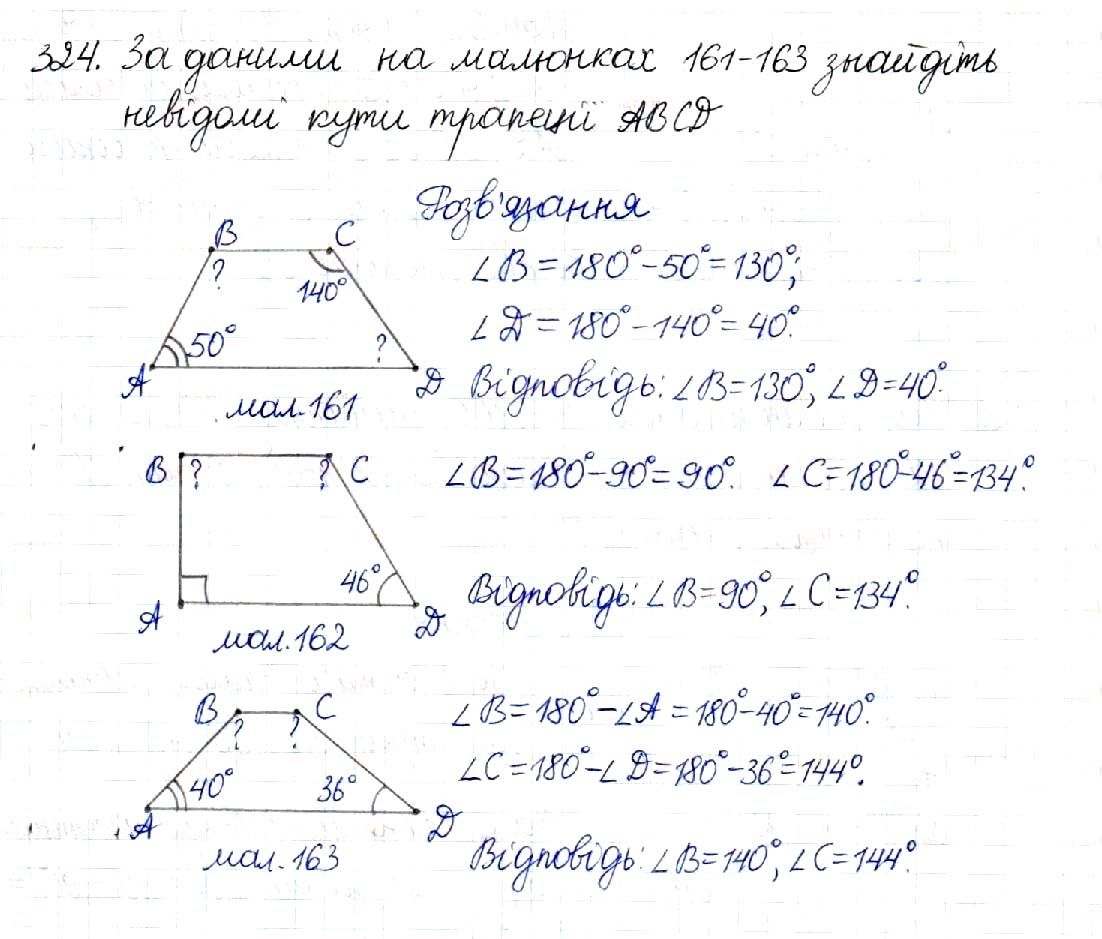 324. За даними на малюнках 161-163 знайдіть
невідомі кути трапеції ABCD
Розв'язання
B C
? 140°
50° ?
A D
мал.161
∠B = 180° - 50° = 130°;
∠D = 180° - 140° = 40°.
Відповідь: ∠B = 130°, ∠D = 40°.
B ? ? C
46°
A D
мал.162
∠B = 180° - 90° = 90°. ∠C = 180° - 46° = 134°.
Відповідь: ∠B = 90°, ∠C = 134°.
B C
? ?
40° 36°
A D
мал.163
∠B = 180° - ∠A = 180° - 40° = 140°.
∠C = 180° - ∠D = 180° - 36° = 144°.
Відповідь: ∠B = 140°, ∠C = 144°.